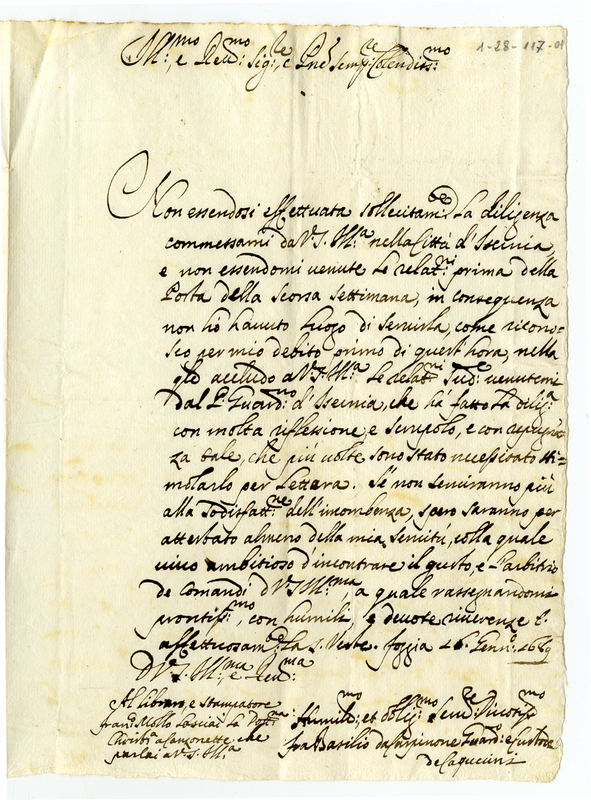 1-28-117-01
M:mo, e Reu:mo Sig:re, e Pne Semp:re Colendiss:mo
Non essendosi effettuata sollecitam:te La diligenza
commessami da V.S. Ill:ma nella Città d'Isernia,
e non essendomi venute Le relat:ni prima della
Posta della scorsa settimana, in conseguenza
non hò havuto Luogo di servirla, come ricono=
sco per mio debito primo di quest'hora, nella
qle accludo a V.S. Ill:ma Le relat:ni Sud:e venutemi
dal P. Guard:no d'Isernia, che ha fatto La dilig:a
con molta riflessione, e scrupolo, e con repugnã=
za tale, che più volte sono stato necessitato sti=
molarlo per Lettera. Se non serviranno più
alla sodisfatt:ne dell'incombenza, spero saranno per
attestato almeno della mia servitù, colla quale
vivo ambitioso d'incontrare il gusto, e L'arbitrio
de comandi d V.S. Ill:ma, a quale rassegnandomi
prontiss:mo, con humili, e devote riverenze L:
affettuosam:te La S. Veste. Foggia 26. Genn:o 1689
D V.S. Ill:ma, e Reu:ma
Al Libraro, e Stampatore
Fran:co Mollo Lasciai La
Canzonette, che
parlai a V.S. Ill:ma
Humiliss:mo et oblig:mo Seru:re Diuotiss:mo
fra Basilio da Carpinone Guard: e Custode
de Capuccini